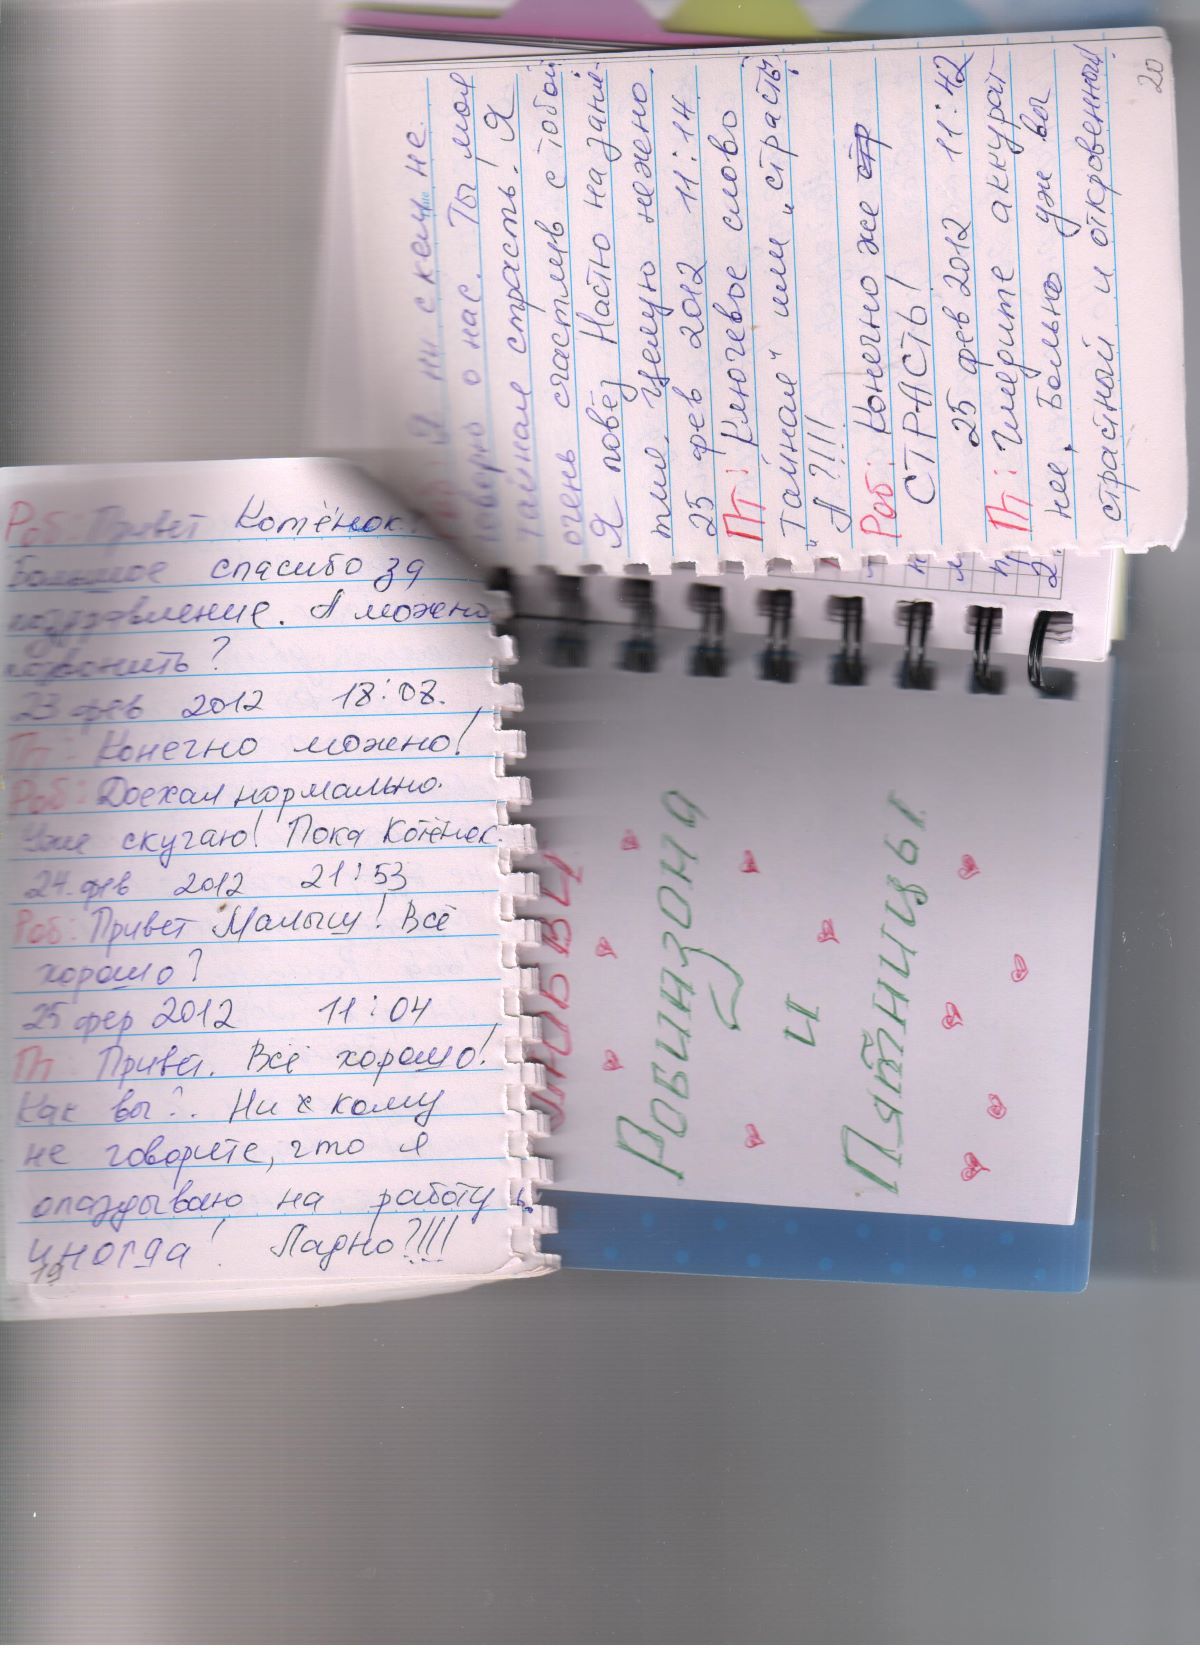 Роб: Привет Котёнок!
Большое спасибо за
поздравление. А можно
позвонить?
23 фев 2012 18:08.
Пт: Конечно можно!
Роб: Доехал нормально.
Уже скучаю! Пока Котёнок.
24. фев 2012 21:53
Роб: Привет Малыш! Всё
хорошо?
25 фев 2012 11:04
Пт Привет. Всё хорошо!
Как вы?. Ни кому
не говорите, что я
опаздываю на работу
иногда! Ладно?!!!
19
Роб: Я ни с кем не
говорю о нас. Ты моя
тайная страсть! Я
очень счастлив с тобой
Я повёз Настю на заня-
тия. Целую нежно.
25 фев 2012 11:14
Пт: Ключевое слово
"тайная" или "страсть"
А?!!!
Роб: Конечно же стр
СТРАСТЬ!
25 фев 2012 11:42
Пт: Шлерите аккурат
нее, Больно уж вы
страстный и откровенный!
20
ЛЮБВИ
Робинзона
и
Пятницы